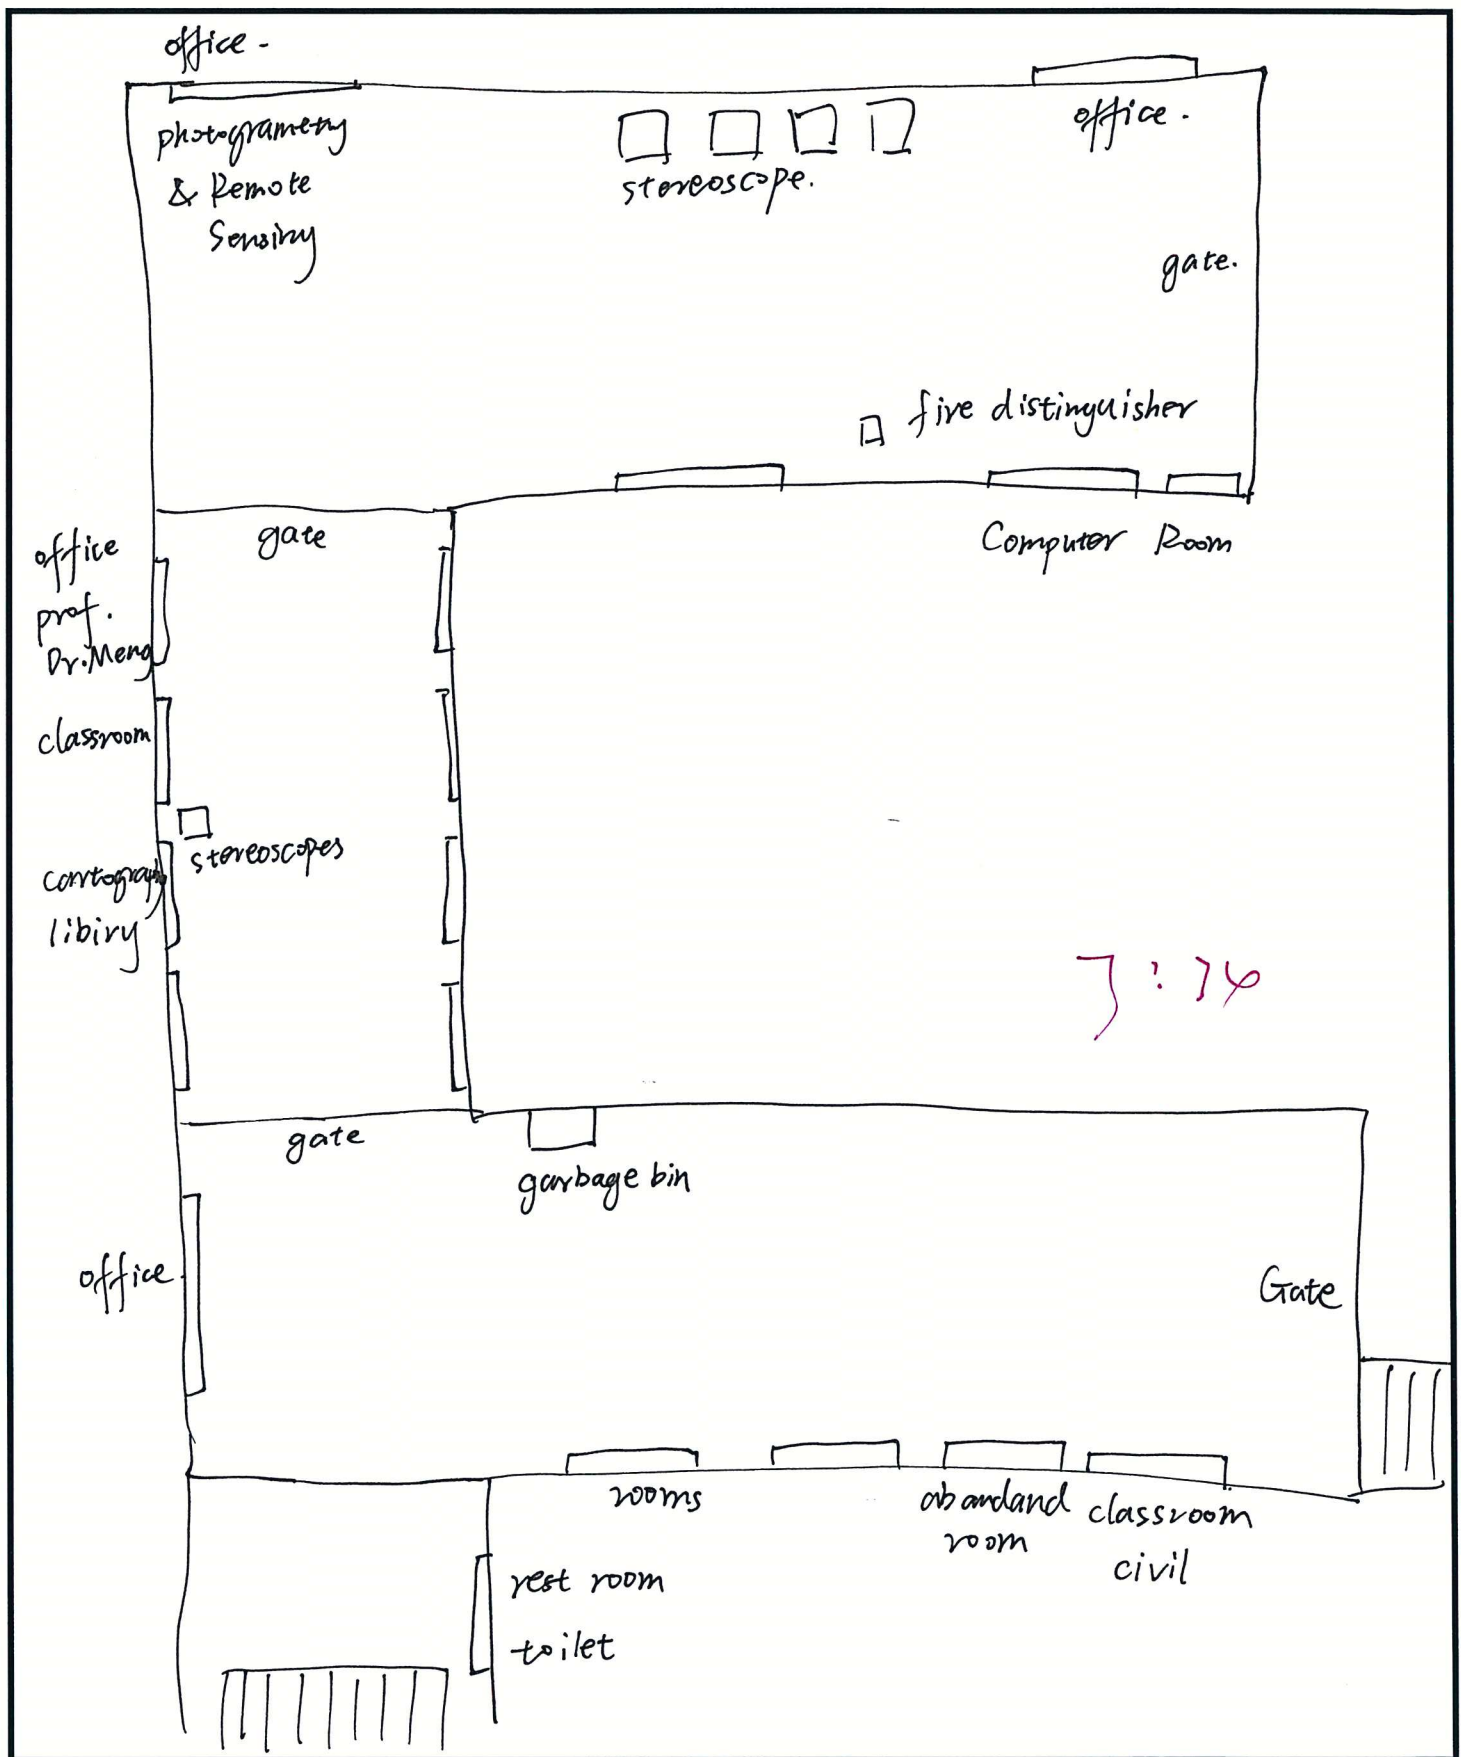 office -
photogrametry
& Remote
Sensing
stereoscope.
office.
gate.
fire distinguisher
gate
Computer Room
office
prof.
Dr. Meng
classroom
stereoscopes
cartography
libiry
7:34
gate
garbage bin
office
Gate
rooms
abandand
room
classroom
civil
rest room
toilet